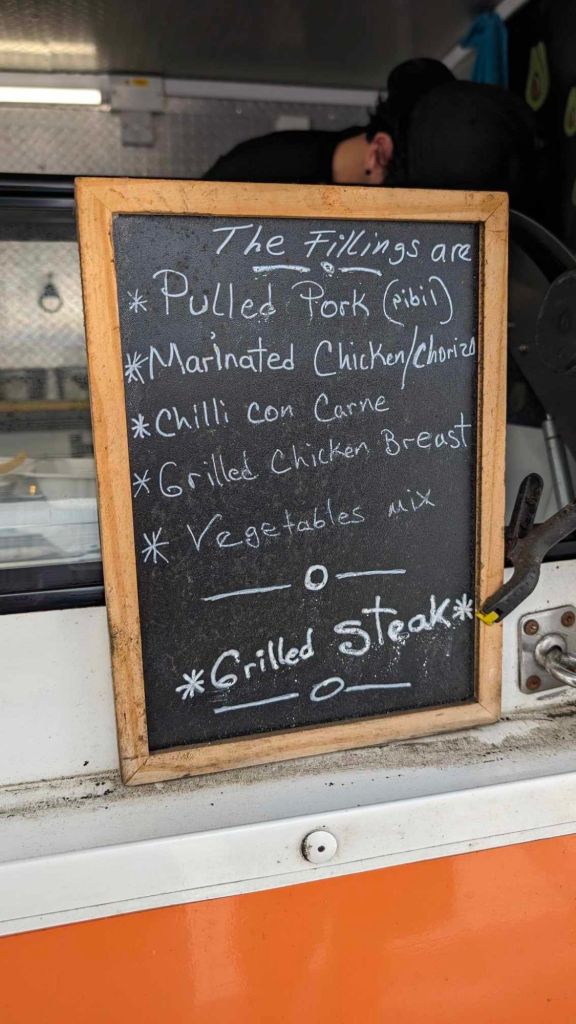 The Fillings are
* Pulled Pork (pibil)
* Marinated Chicken/Chorizo
* Chilli con Carne
* Grilled Chicken Breast
* Vegetables mix
*Grilled Steak*